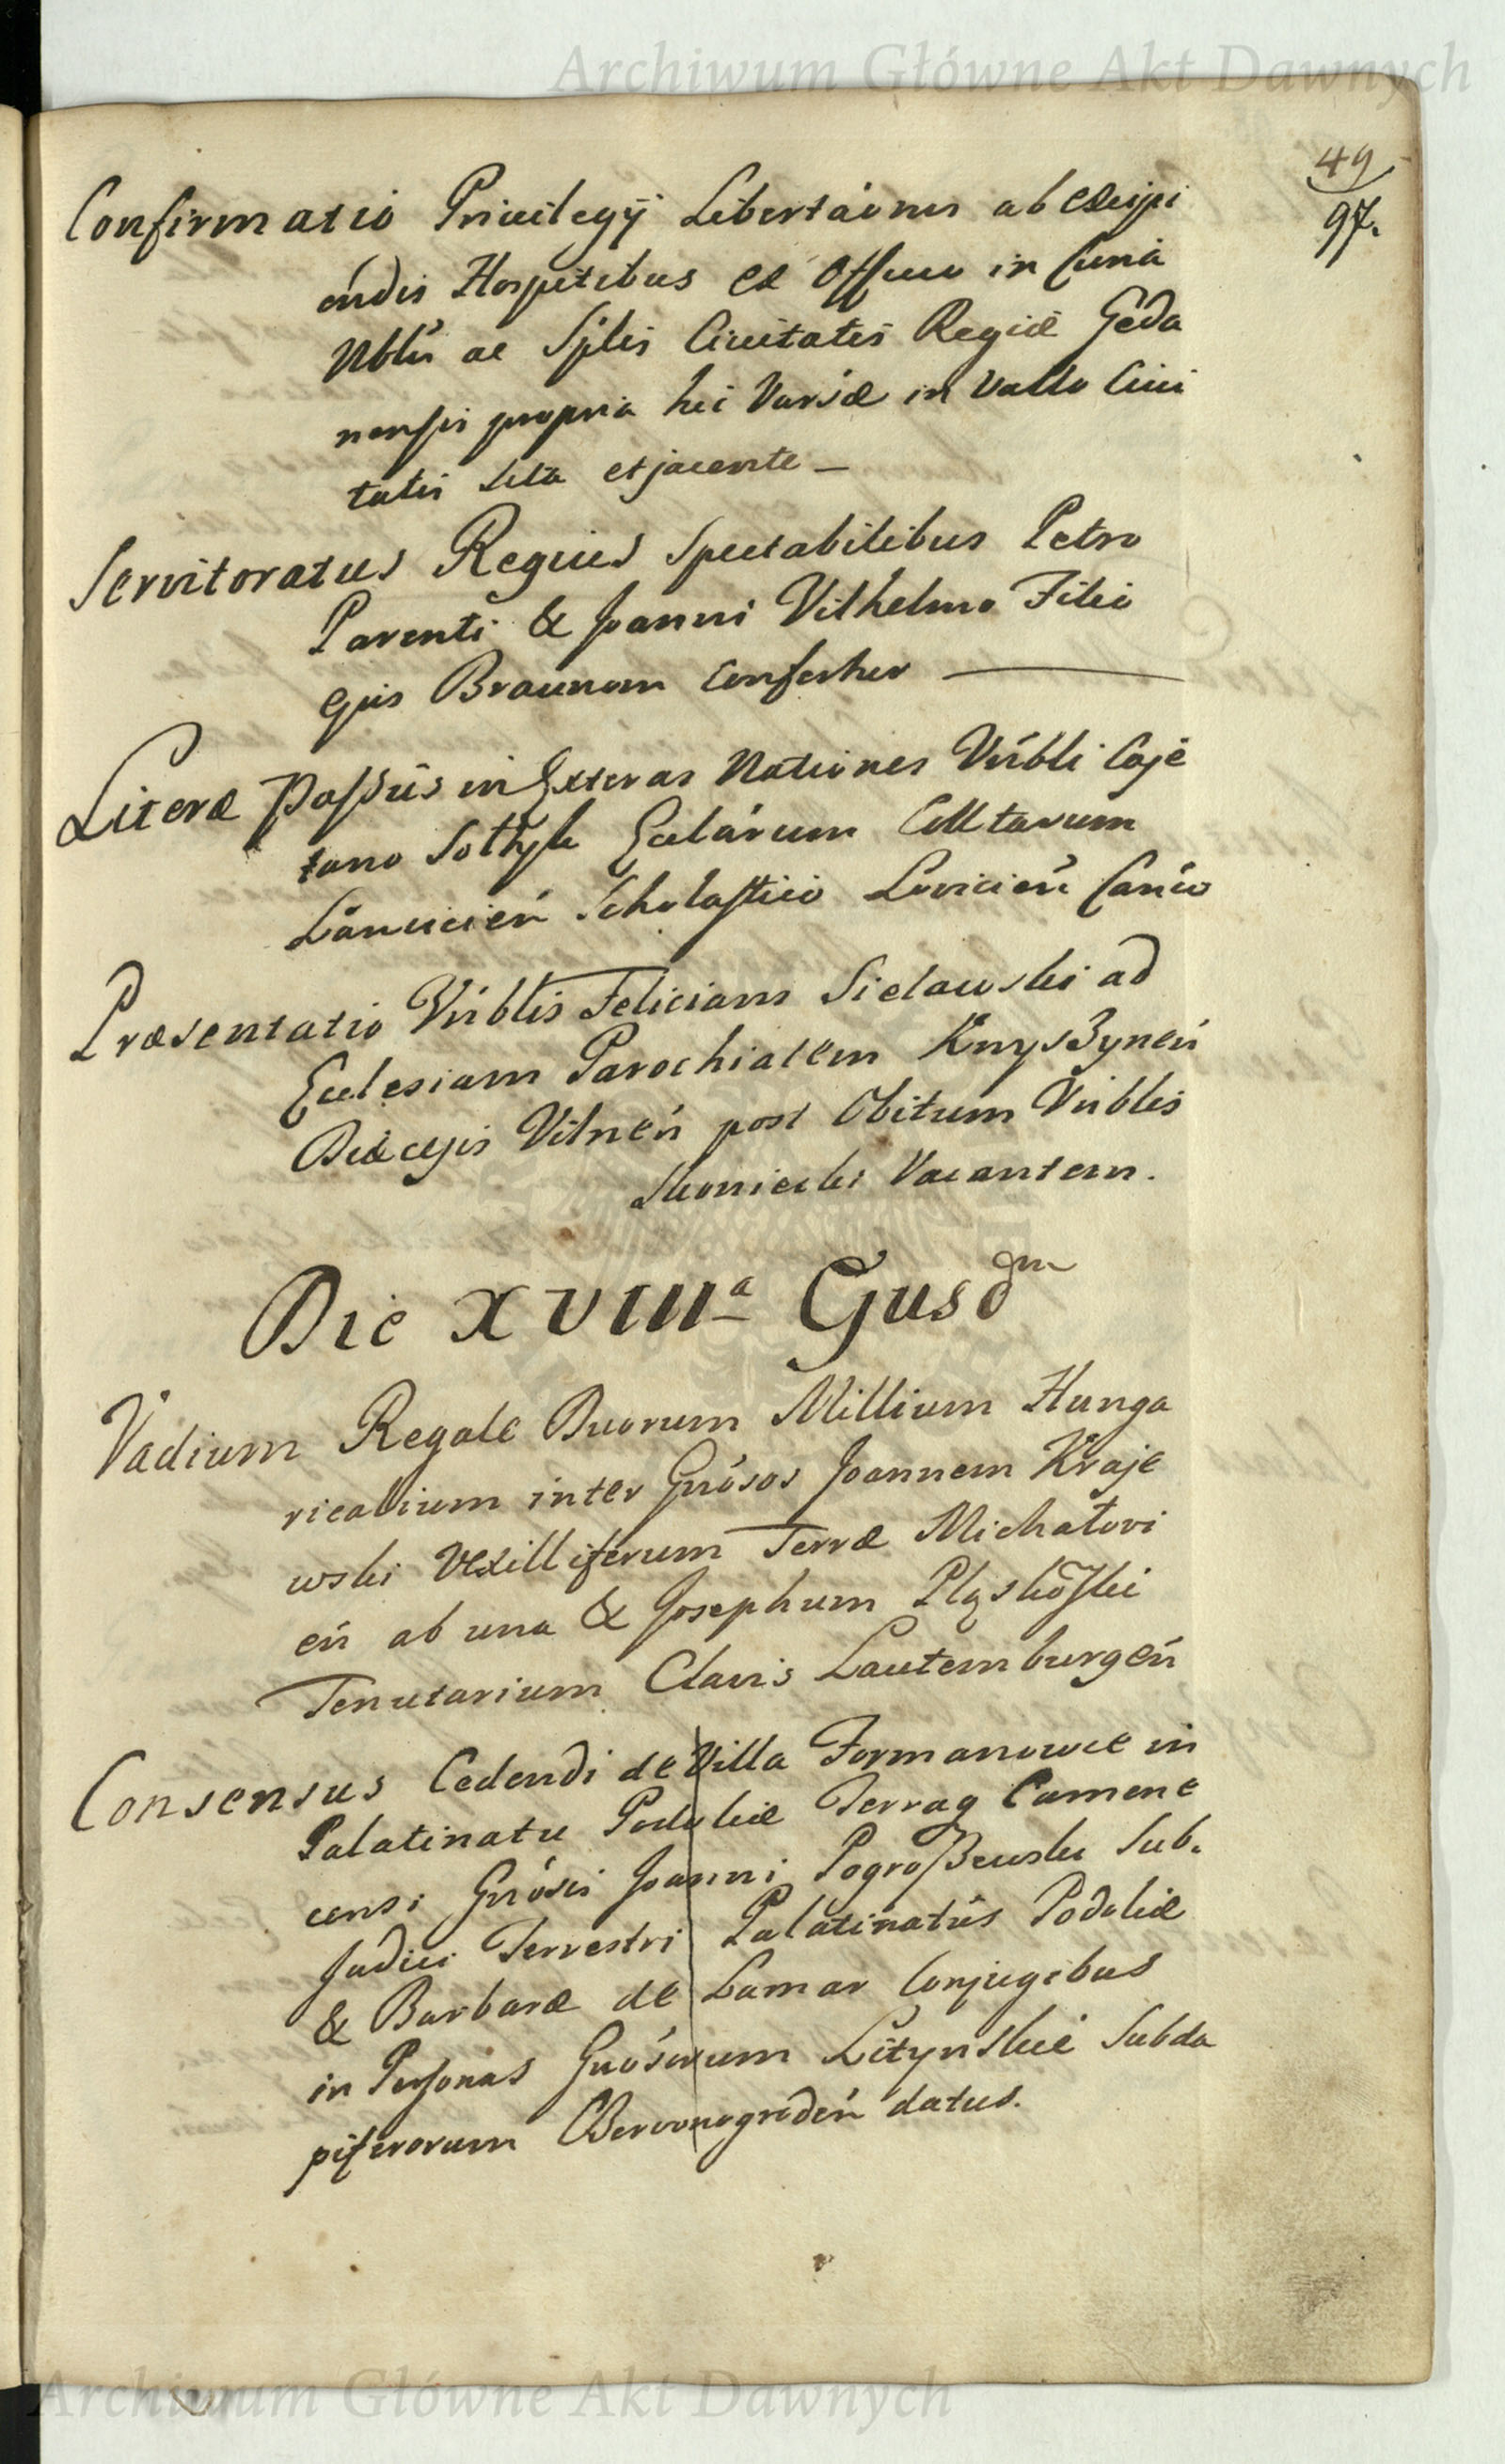 Archiwum Główne Akt Dawnych
49
97.
Confirmatio Privilegÿ Libertaonis ab excipi
endis Hospitibus ex Officio in Curia
Nblis ac Splis Civitatis Regiæ Geda
nensis propria hic Varsæ in Vallo Civi
tatis sita et jacente –
Servitoratus Regius Spectabilibus Petro
Parenti & Joanni Vilhelmo Filio
Ejus Braunom confertur —
Literæ Passûs in Exteras Nationes Vrbli Caje
tano Sołtyk Ecclarum Cllltarum
Lancicien Scholastico Lovicien Canco
Præsentatio Vrblis Feliciani Sielawski ad
Ecclesiam Parochialem Knyszynen
Diæcesis Vilnen post Obitum Vrblis
Vacantem.
Die XVIIIa Ejusdm
Vadium Regale Duorum Millium Hunga
ricalium inter Gnosos Joannem Kraje
wski Vexilliferum Terræ Michałovi
en ab una & Josephum Pląskowski
Tenutarium Clavis Lautemburgen
Consensus Cedendi de Villa Formanowce in
Palatinatu Podoliæ Terraq Camene
censi Gnosis Joanni Pogroszewski Sub.
Judici Terrestri Palatinatûs Podoliæ
& Barbaræ de Lamar Conjugibus
in Personas Gnosorum Litynskie Subda
piferorum Czerwonogroden datus.
Archiwum Główne Akt Dawnych